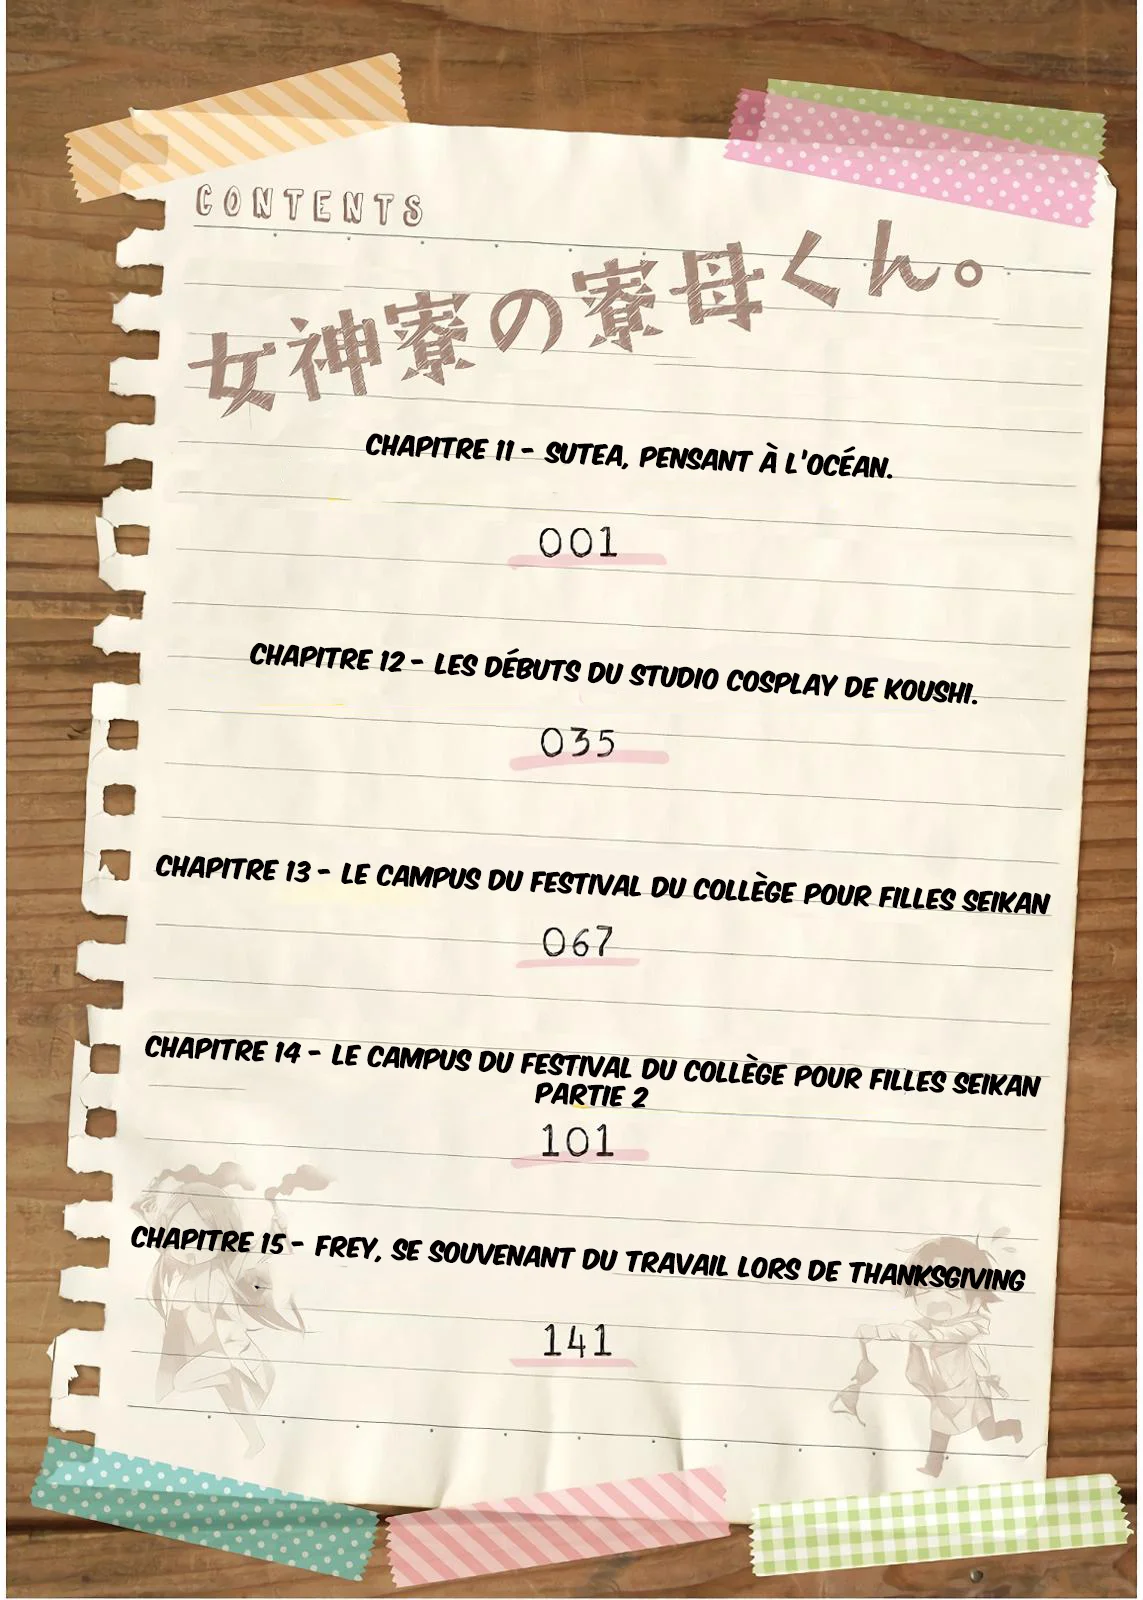 CONTENTS
女神寮の寮母くん。
CHAPITRE 11 - SUTEA, PENSANT À L'OCÉAN.
001
CHAPITRE 12 - LES DÉBUTS DU STUDIO COSPLAY DE KOUSHI.
035
CHAPITRE 13 - LE CAMPUS DU FESTIVAL DU COLLÈGE POUR FILLES SEIKAN
067
CHAPITRE 14 - LE CAMPUS DU FESTIVAL DU COLLÈGE POUR FILLES SEIKAN
PARTIE 2
101
CHAPITRE 15 - FREY, SE SOUVENANT DU TRAVAIL LORS DE THANKSGIVING
141